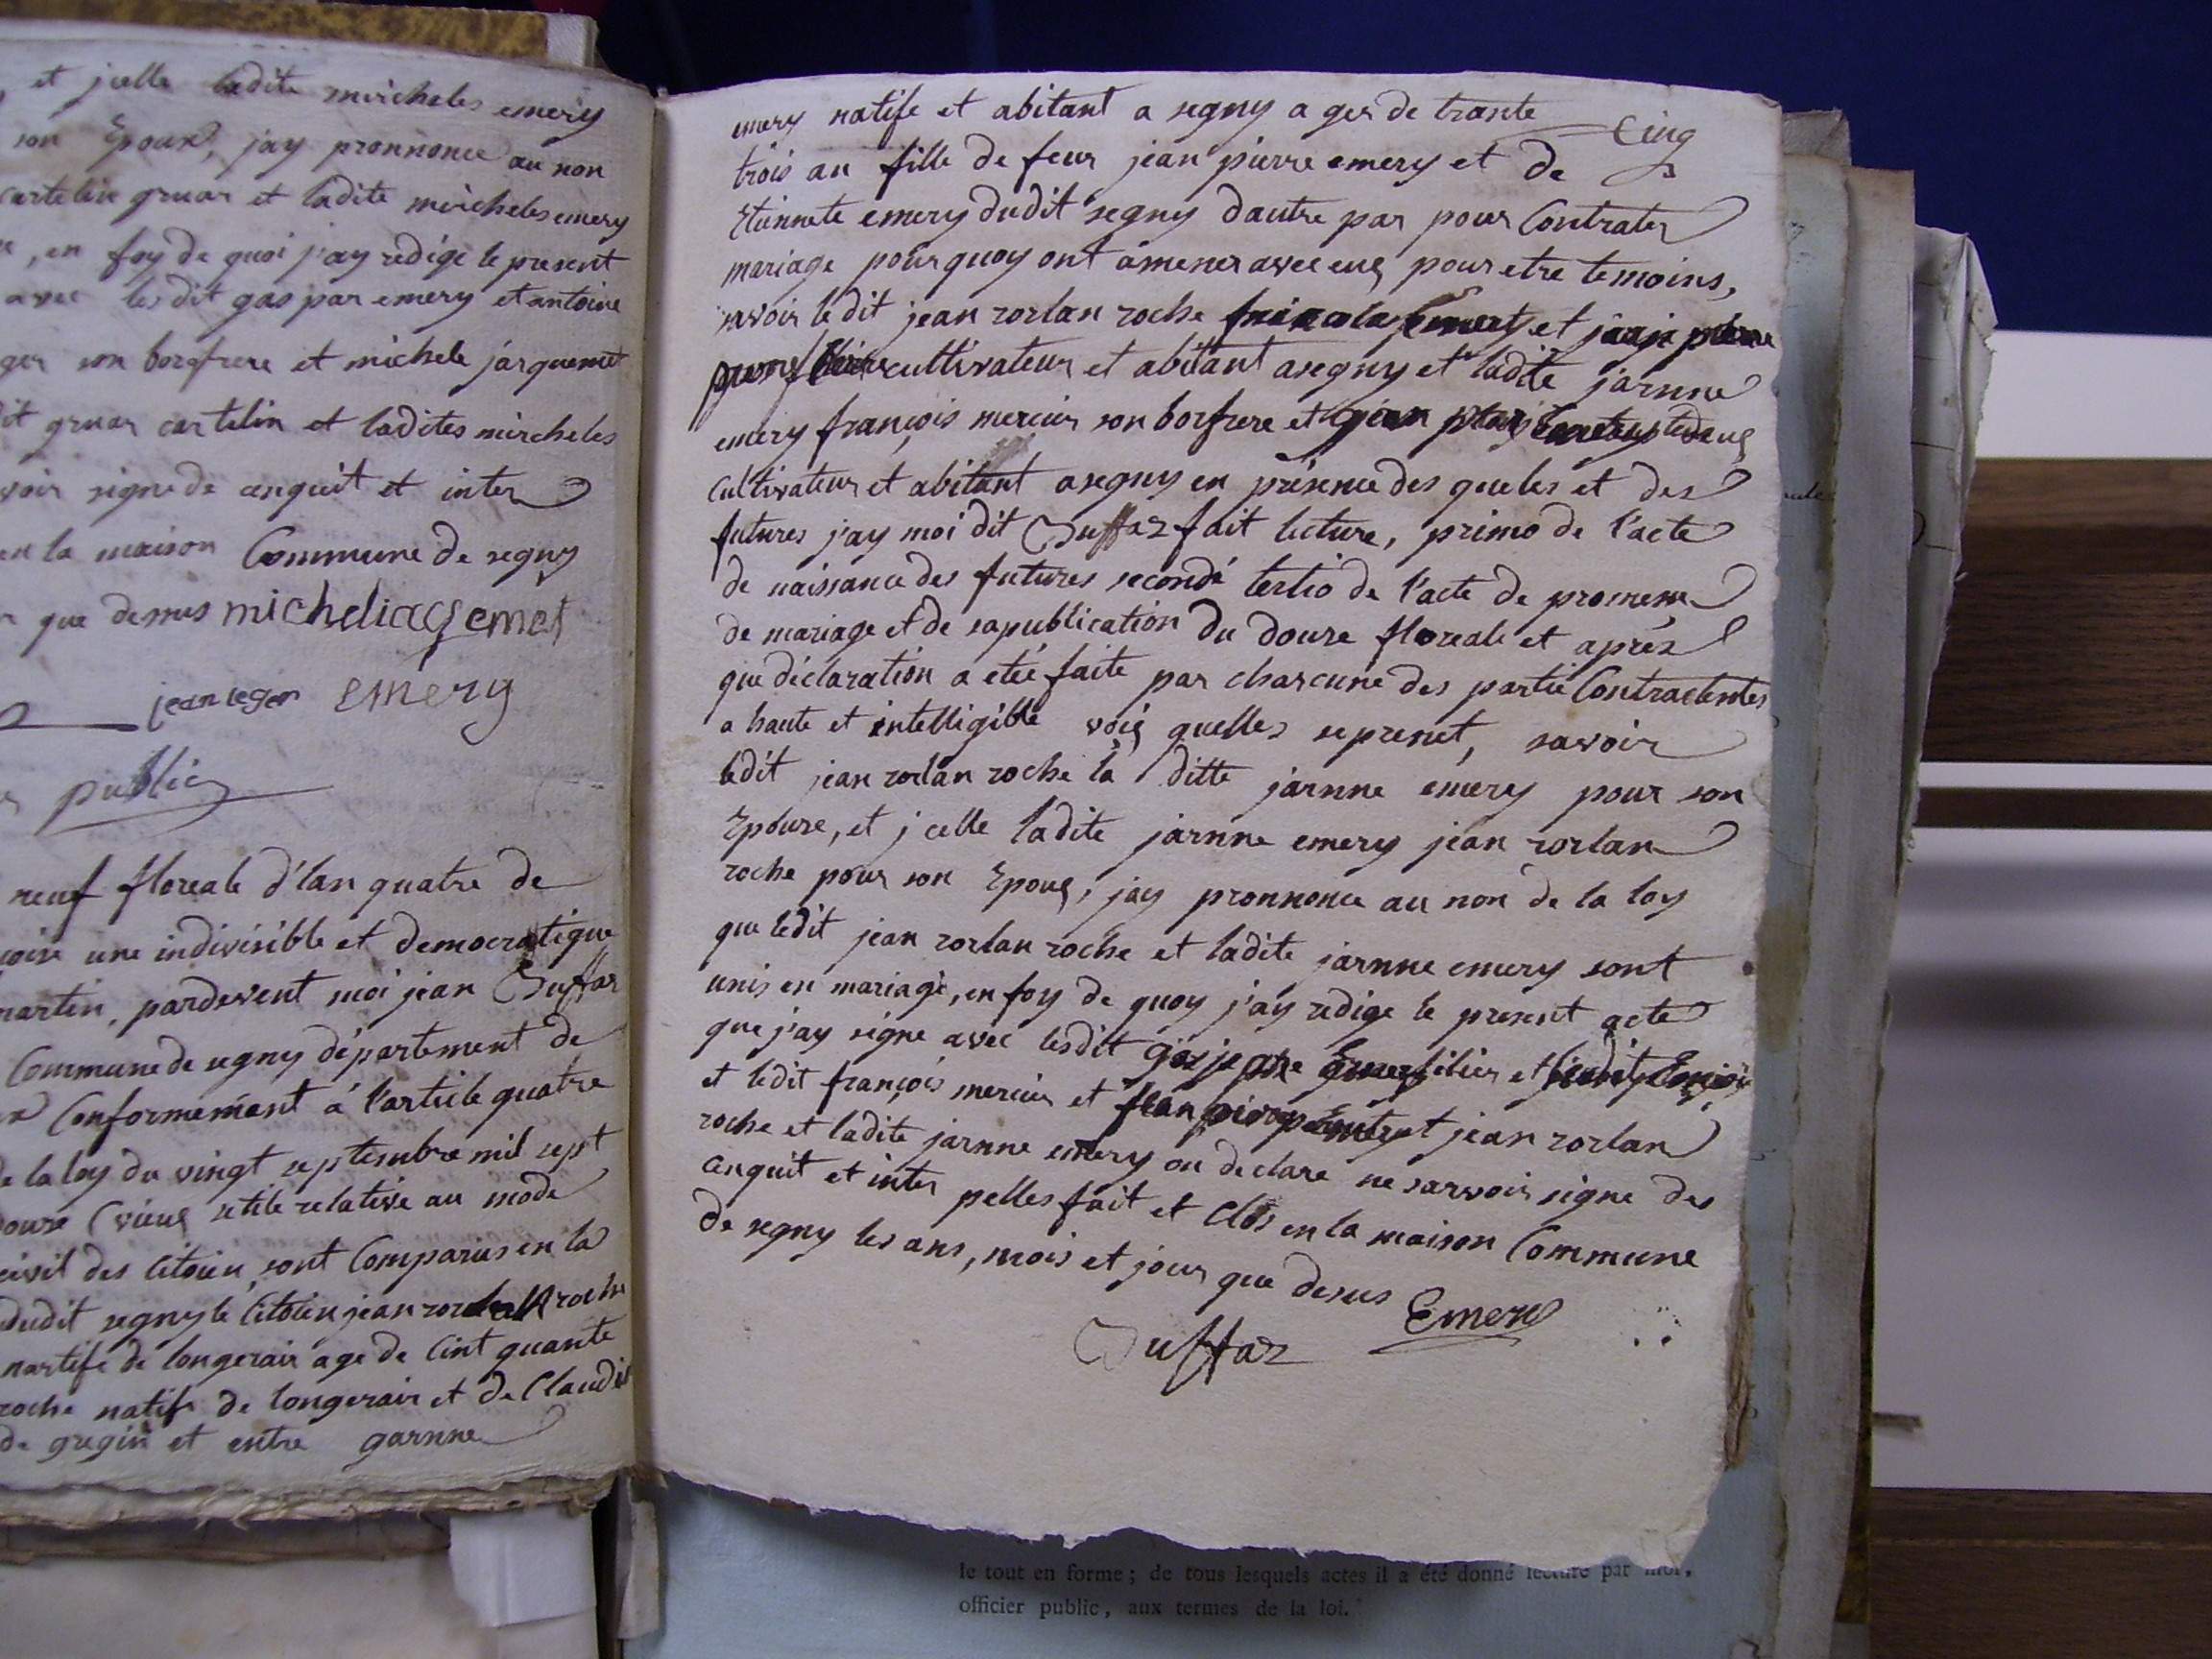 et jcelle ladite micheles emery
son Epoux, jay pronnonce au non
cartelin gruar et ladite micheles emery
, en foy de quoi j'ay redige le present
avec les dit gaspar emery et antoine
ger son borfrere et michele jarquemet
dit gruar cartelin et ladites micheles
voir signe de cenquit et inter
en la maison Commune de segny
que dessus micheliacqemet
jean leger emery
public
neuf floreale d'lan quatre de
çoise une indivisible et democratique
martin, pardevent moi jean Duffaz
Commune de segny département de
Conformement á l'article quatre
de la loy du vingt septembre mil sept
douze (vieux stile relative au mode
civil des Citoien sont Comparus en la
dudit segny le Citoien jean rorlan roche
nartife de longerair age de Cint quante
roche natife de longerair et de Claudi
de gregin et entre garnne
emery natife et abitant a segny a ges de trante
Cinq
trois an fille de feur jean pierre emery et de
Etiennete emery dudit segny dautre par pour Contrater
mariage pourquoy ont amener avec eux pour etre temoins,
savoir ledit jean rorlan roche et
cultivateur et abitant asegny et ladite jarnne
emery françois mercier son borfrere et
cultivateur et abitant asegny en présence des queles et des
futures j'ay moi dit Duffaz fait lecture, primo de l'acte
de naissance des futures secondé tertio de l'acte de promesse
de mariage et de sapublication du douze floreale et aprés
que déclaration a etée faite par charcune des partie Contractentes
a haute et intelligible voix quelles se prenet, savoir
ledit jean rorlan roche la ditte jarnne emery pour son
Epouse, et jcelle ladite jarnne emery jean rorlan
roche pour son Epoux, jay pronnonce au non de la loy
que ledit jean rorlan roche et ladite jarnne emery sont
unis en mariage, en foy de quoy j'ay redige le present acte
que j'ay signe avec lesdit et
et ledit françois mercier et jean rorlan
roche et ladite jarnne emery ou declare ne sarvoir signe des
enquit et inter pelles fait et clos en la maison Commune
de segny les ans, mois et jour que desus
Emery
Duffaz
le tout en forme; de tous lesquels actes il a été donné lecture par moi,
officier public, aux termes de la loi.